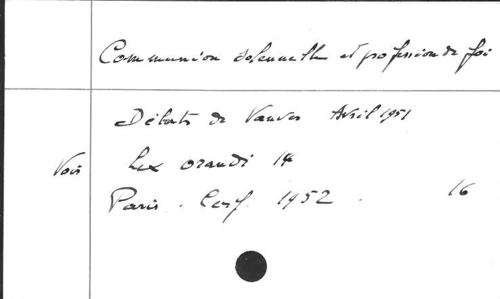 Communion solennelle et profession de foi
Débats de Vanves Avril 1951
Voir Lex orandi 14
Paris. Cerf. 1952. 16